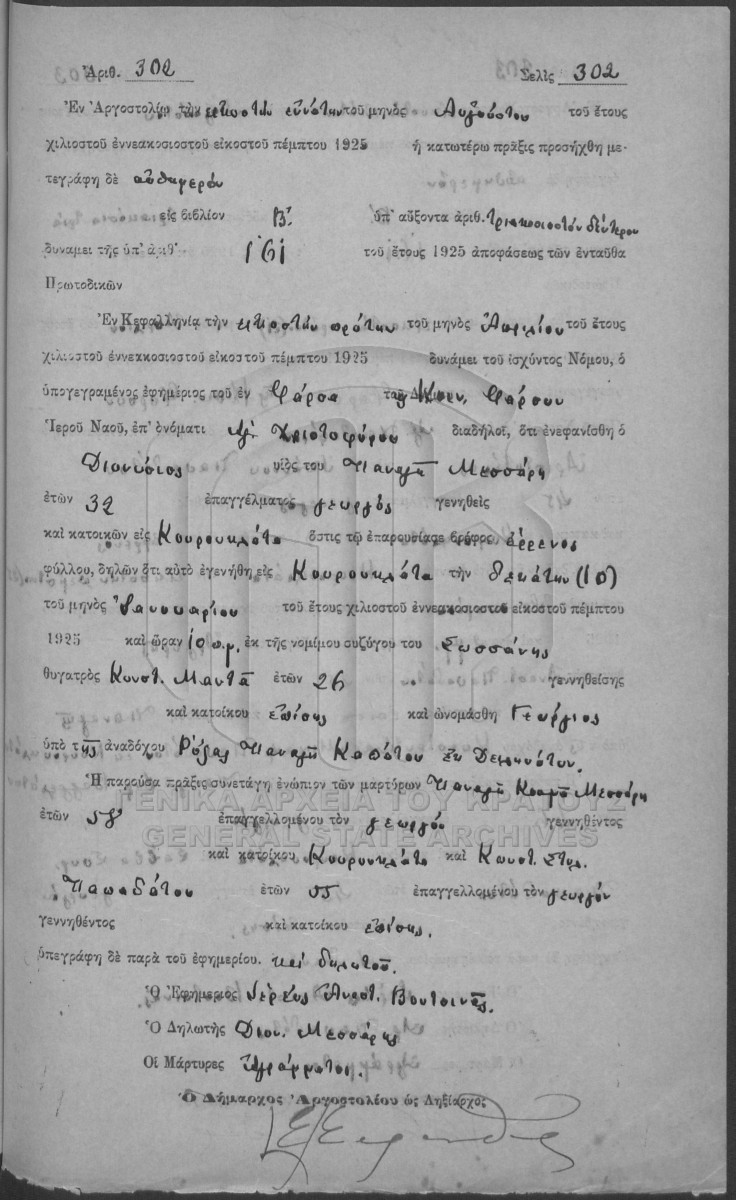 Ἀριθ. 302 Σελὶς 302
Ἐν Ἀργοστολίῳ τὴν εἰκοστὴν ἐννάτην τοῦ μηνὸς Αὐγούστου τοῦ ἔτους
χιλιοστοῦ ἐννεακοσιοστοῦ εἰκοστοῦ πέμπτου 1925 ἡ κατωτέρω πρᾶξις προσήχθη με-
τεγράφη δὲ αὐθημερόν
εἰς βιβλίον Β΄. ὑπ' αὔξοντα ἀριθ. τριακοσιοστόν δεύτερον
δυνάμει τῆς ὑπ' ἀριθ. 161 τοῦ ἔτους 1925 ἀποφάσεως τῶν ἐνταῦθα
Πρωτοδικῶν
Ἐν Κεφαλληνίᾳ τὴν εἰκοστὴν πρώτην τοῦ μηνὸς Ἀπριλίου τοῦ ἔτους
χιλιοστοῦ ἐννεακοσιοστοῦ εἰκοστοῦ πέμπτου 1925 δυνάμει τοῦ ἰσχύοντος Νόμου, ὁ
ὑπογεγραμένος ἐφημέριος τοῦ ἐν Φάρσα τοῦ Κοιν. Φάρσων
Ἱεροῦ Ναοῦ, ἐπ' ὀνόματι Ἁγ. Χριστοφόρου διαδηλοῖ, ὅτι ἐνεφανίσθη ὁ
Διονύσιος υἱὸς του Παναγῆ Μεσσάρη
ἐτῶν 32 ἐπαγγέλματος γεωργός γεννηθεὶς
καὶ κατοικῶν εἰς Κουρουκλάτα ὅστις τῷ ἐπαρουσίασε βρέφος ἄρρενος
φύλλου, δηλῶν ὅτι αὐτὸ ἐγενήθη εἰς Κουρουκλάτα τὴν δεκάτην (10)
τοῦ μηνὸς Ἰανουαρίου τοῦ ἔτους χιλιοστοῦ ἐννεακοσιοστοῦ εἰκοστοῦ πέμπτου
1925 καὶ ὥραν 10 π.μ. ἐκ τῆς νομίμου συζύγου του Σωσσάνης
θυγατρὸς Κωνστ. Μαντᾶ ἐτῶν 26 γεννηθείσης
καὶ κατοίκου ἐπίσης καὶ ὠνομάσθη Γεώργιος
ὑπὸ τῆς ἀναδόχου Ρόζας Παναγῆ Καπάτου ἐκ Δειλινάτων.
Ἡ παροῦσα πρᾶξις συνετάγη ἐνώπιον τῶν μαρτύρων Παναγῆ Μεσσάρη
ἐτῶν 58 ἐπαγγελλομένου τὸν γεωργόν γεννηθέντος
ΓΕΝΙΚΑ ΑΡΧΕΙΑ ΤΟΥ ΚΡΑΤΟΥΣ
GENERAL STATE ARCHIVES
καὶ κατοίκου Κουρουκλάτα καὶ Κωνστ. Στυλ.
Παπαδάτου ἐτῶν 55 ἐπαγγελλομένου τὸν γεωργόν
γεννηθέντος καὶ κατοίκου ἐπίσης.
ὑπεγράφη δὲ παρὰ τοῦ ἐφημερίου. καὶ δηλωτοῦ.
Ὁ Ἐφημέριος Ἱερεύς Ἀναστ. Βουτσινᾶς.
Ὁ Δηλωτὴς Διον. Μεσσάρης
Οἱ Μάρτυρες Ἀγράμματοι.
Ὁ Δήμαρχος Ἀργοστολίου ὡς Ληξίαρχος